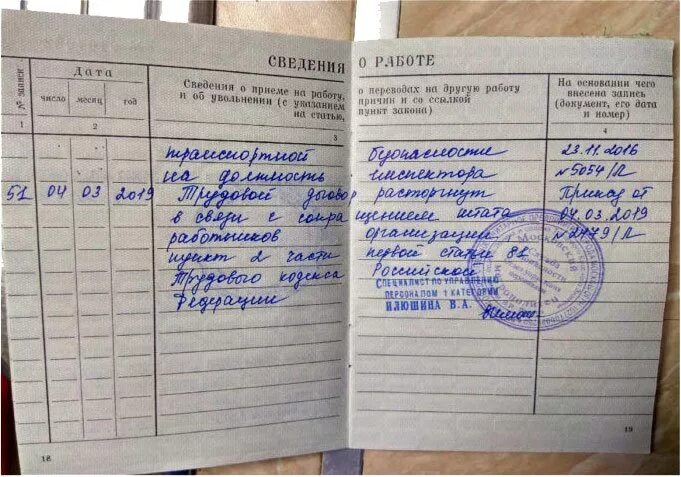 СВЕДЕНИЯ О РАБОТЕ
№ записи
Дата
число месяц год
Сведения о приеме на работу, о переводах на другую работу
и об увольнении (с указанием причин и со ссылкой
на статью, пункт закона)
На основании чего
внесена запись
(документ, его дата
и номер)
1 2 3 4
транспортной безопасности 23.11.2016
на должность инспектора №5054/Л
51 04 03 2019 Трудовой договор расторгнут Приказ от
в связи с сокращением штата 04.03.2019
работников организации №2479/Л
пункт 2 части первой статьи 81
Трудового кодекса Российской
Федерации
СПЕЦИАЛИСТ ПО УПРАВЛЕНИЮ
ПЕРСОНАЛОМ 1 КАТЕГОРИИ
ИЛЮШИНА В.А.
18
19